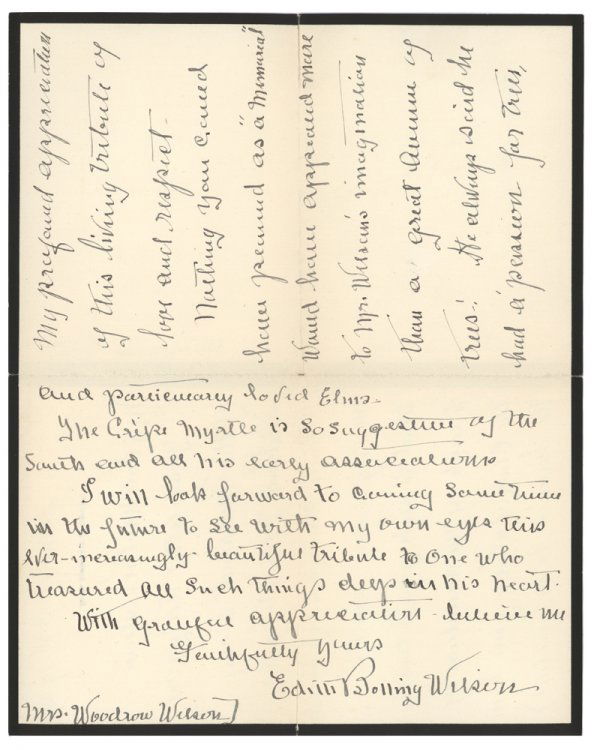 My profound appreciation
of this living tribute of
love and respect.
Nothing you could
have planned as a "Memorial"
would have appealed more
to Mr. Wilson's imagination
than a great Avenue of
trees. He always said he
had "a passion for trees,"
and particularly loved Elms.
The Cripe Myrtle is so suggestive of the
South and all his early associations
I will look forward to coming some time
in the future to see with my own eyes this
ever-increasingly-beautiful tribute to one who
treasured all such things deep in his heart.
With grateful appreciation believe me
Faithfully yours
Edith Bolling Wilson
Mrs. Woodrow Wilson]